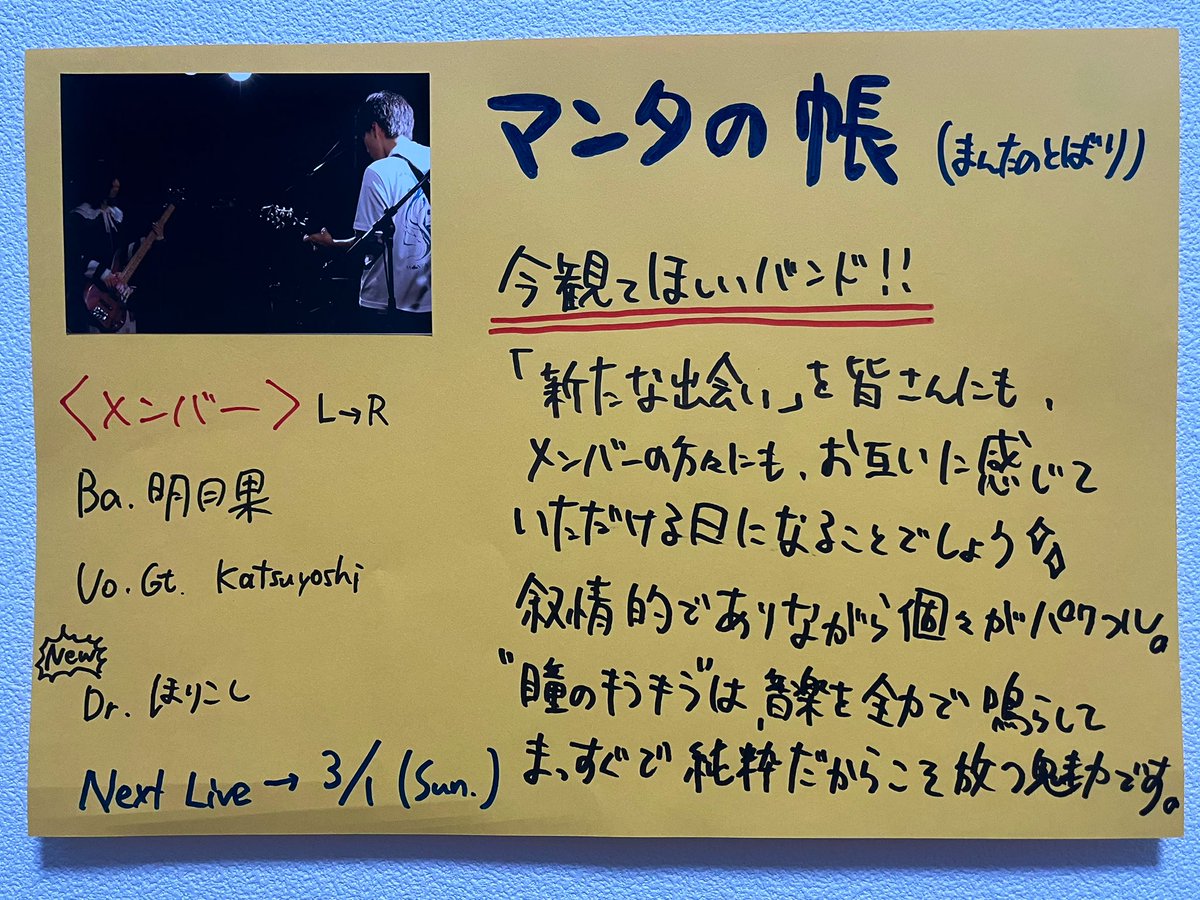 マンタの帳 (まんたのとばり)
今観てほしいバンド!!
「新たな出会い」を皆さんにも、
メンバーの方々にも、お互いに感じて
いただける日になることでしょう
叙情的でありながら個々がパワフル。
"瞳のキラキラ"は、音楽を全力で鳴らして
まっすぐで純粋だからこそ放つ魅力です。
〈メンバー〉 L→R
Ba. 明日果
Vo. Gt. Katsuyoshi
New
Dr. ほりこし
Next Live → 3/1 (Sun.)